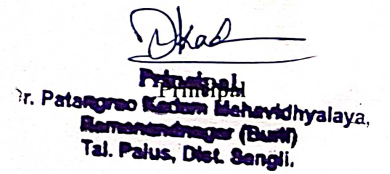 Principal
Principal
Dr. Patangrao Kadam Mahavidhyalaya,
Ramanandnagar (Burli)
Tal. Palus, Dist. Sangli.